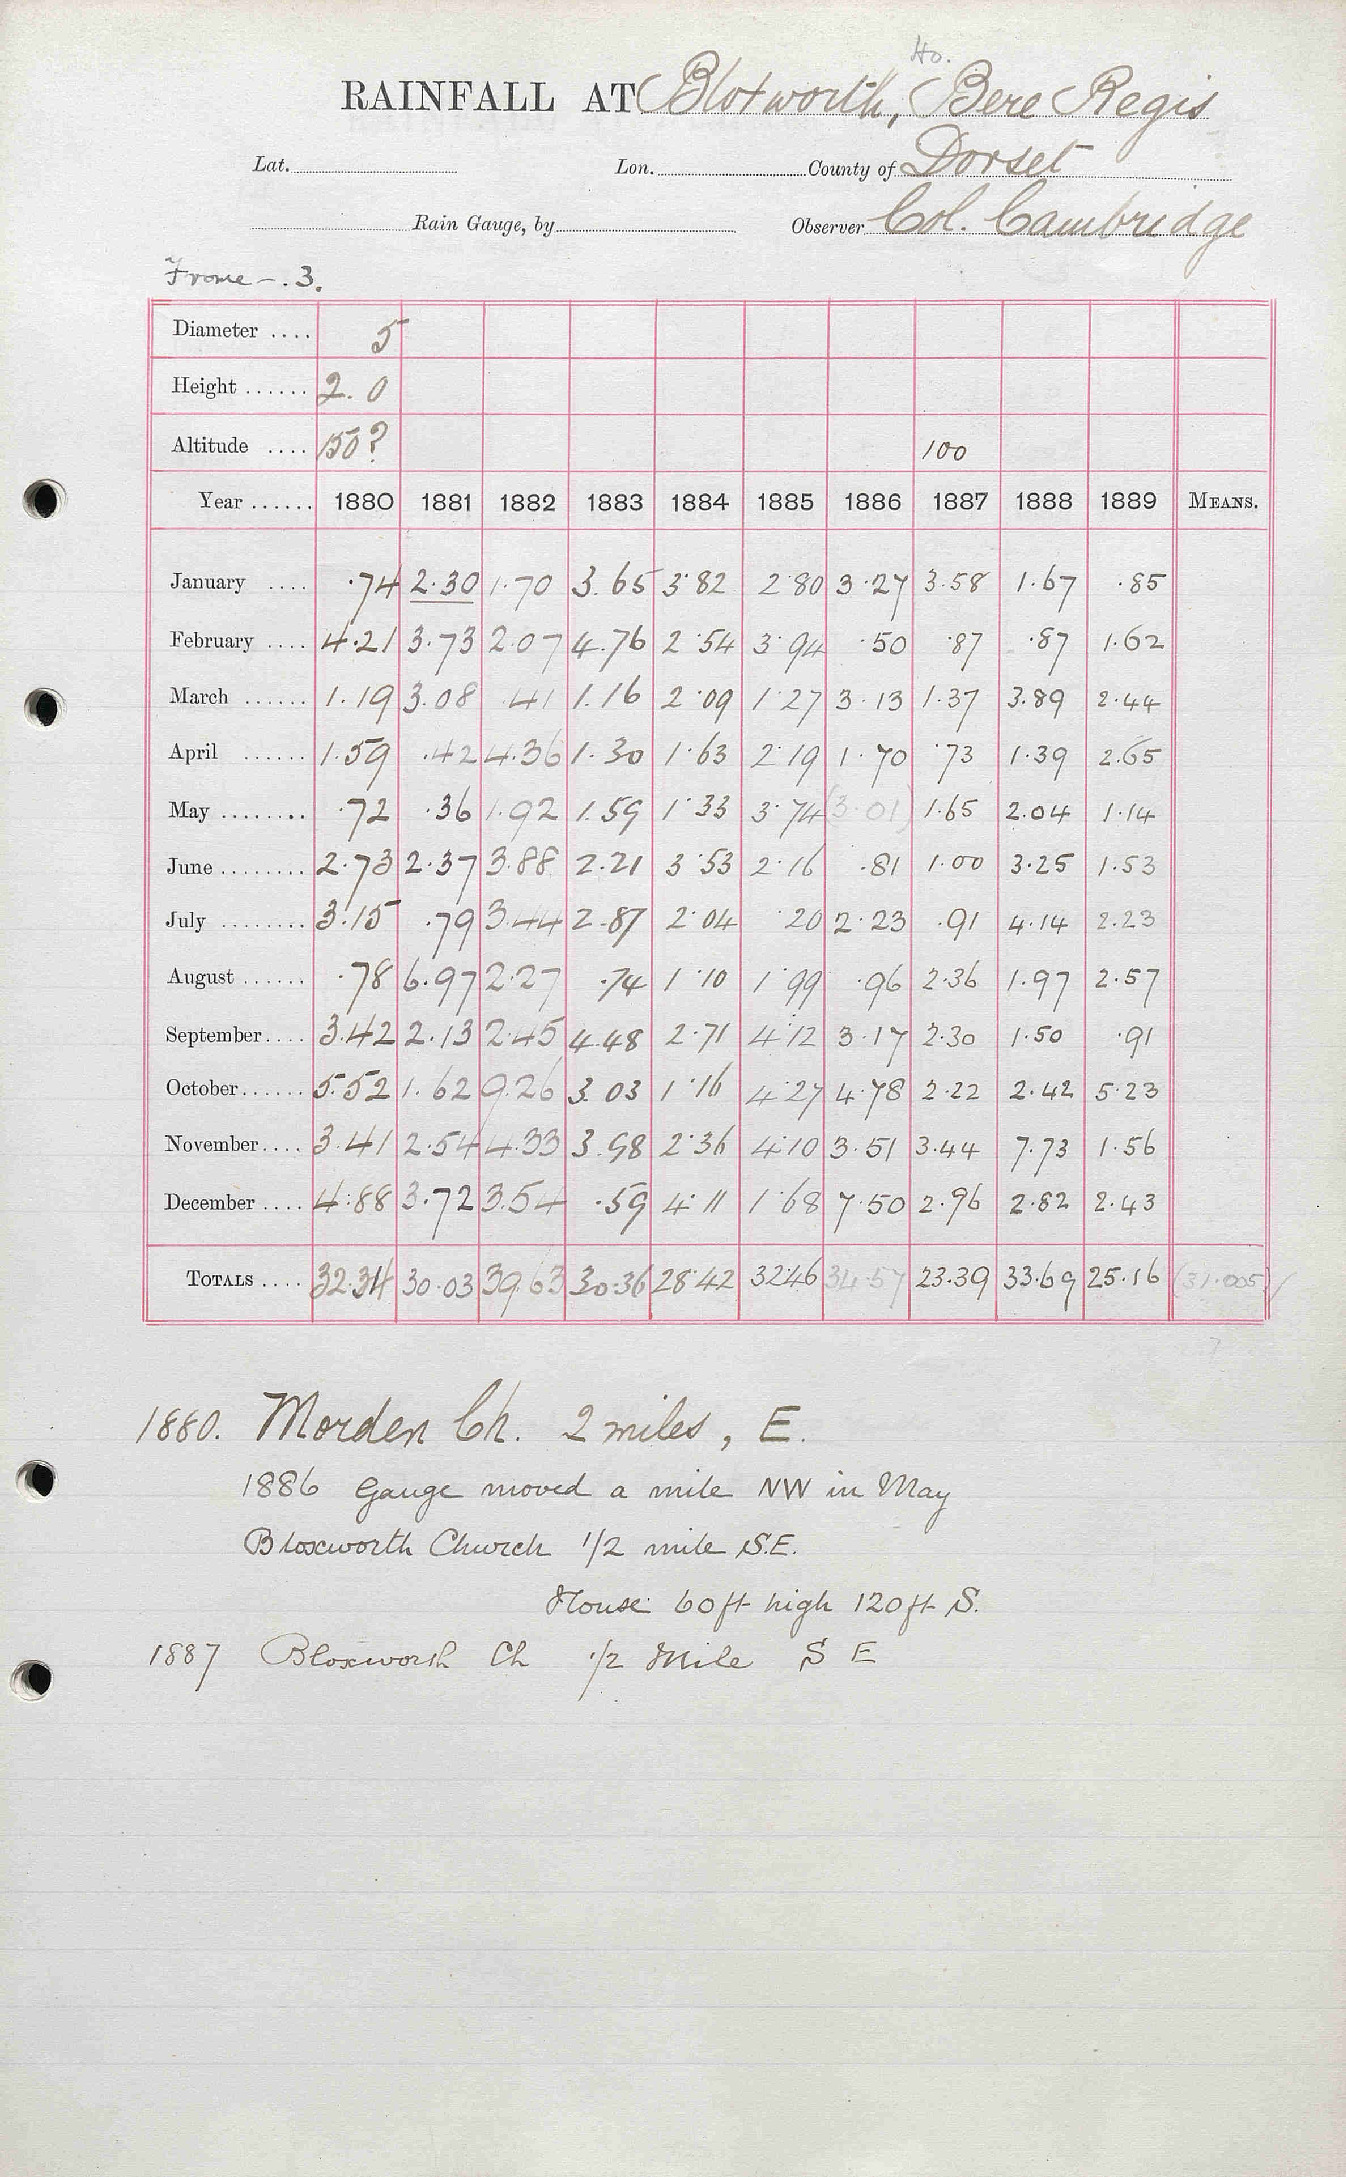 Ho.
RAINFALL AT Bloxworth, Bere Regis
Lat. Lon. County of Dorset
Rain Gauge, by Observer Col. Cambridge
Frome - . 3.
Diameter .... 5
Height ...... 2. 0
Altitude .... 150? 100
Year ...... 1880 1881 1882 1883 1884 1885 1886 1887 1888 1889 MEANS.
January .... .74 2.30 1.70 3.65 3.82 2.80 3.27 3.58 1.67 .85
February .... 4.21 3.73 2.07 4.76 2.54 3.94 .50 .87 .87 1.62
March ...... 1.19 3.08 .41 1.16 2.09 1.27 3.13 1.37 3.89 2.44
April ...... 1.59 .42 4.36 1.30 1.63 2.19 1.70 .73 1.39 2.65
May ........ .72 .36 1.92 1.59 1.33 3.74 (3.01) 1.65 2.04 1.14
June ........ 2.73 2.37 3.88 2.21 3.53 2.16 .81 1.00 3.25 1.53
July ........ 3.15 .79 3.44 2.87 2.04 .20 2.23 .91 4.14 2.23
August ...... .78 6.97 2.27 .74 1.10 1.99 .96 2.36 1.97 2.57
September .... 3.42 2.13 2.45 4.48 2.71 4.12 3.17 2.30 1.50 .91
October ...... 5.52 1.62 9.26 3.03 1.16 4.27 4.78 2.22 2.42 5.23
November .... 3.41 2.54 4.33 3.98 2.36 4.10 3.51 3.44 7.73 1.56
December .... 4.88 3.72 3.54 .59 4.11 1.68 7.50 2.96 2.82 2.43
TOTALS .... 32.34 30.03 39.63 30.36 28.42 32.46 34.57 23.39 33.69 25.16 (31.005)
7
1880. Morden Ch. 2 miles, E.
1886 Gauge moved a mile NW in May
Bloxworth Church 1/2 mile S.E.
House 60ft high 120ft S.
1887 Bloxworth Ch 1/2 Mile S E